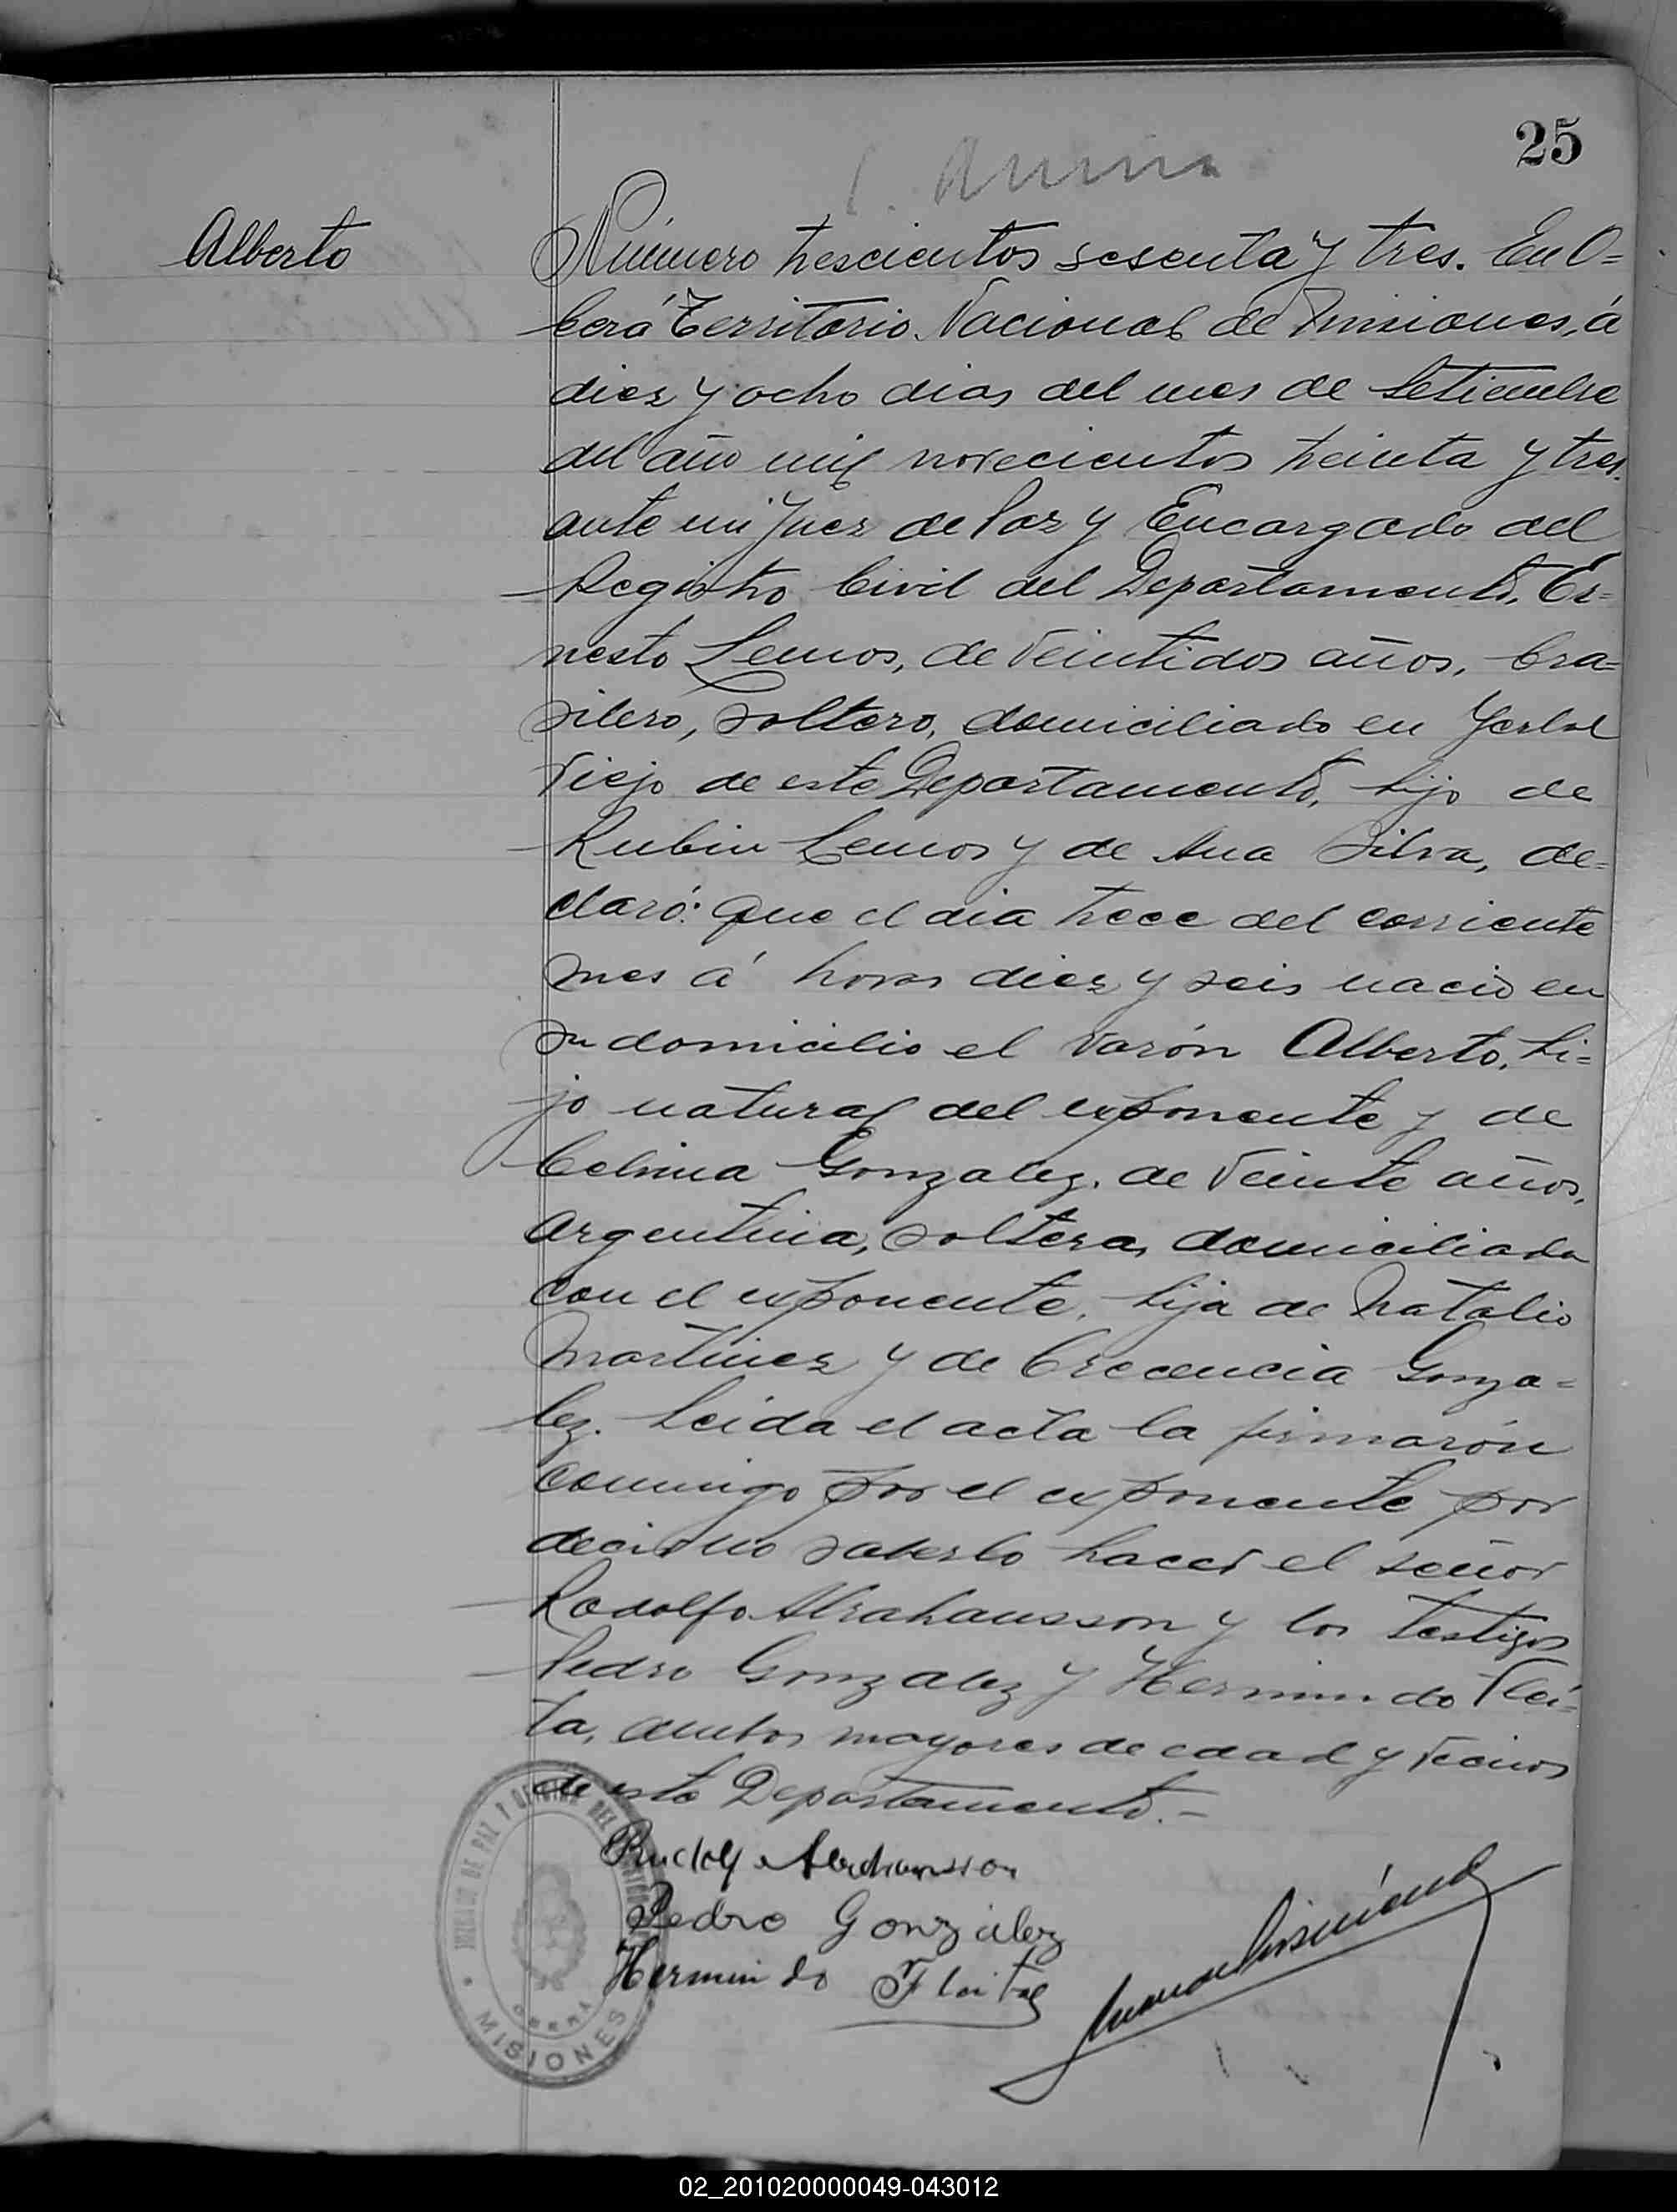 25
Alberto
Número trescientos sesenta y tres. En O=
berá Territorio Nacional de Misiones, á
diez y ocho dias del mes de Setiembre
del año mil novecientos treinta y tres.
ante mi Juez de Paz y Encargado del
Registro Civil del Departamento, Er=
nesto Lemos, de veintidos años, bra=
silero, soltero, domiciliado en Yerbal
Viejo de este Departamento, hijo de
Rubin Lemos y de Ana Silva, de=
claró: que el dia trece del corriente
mes á horas diez y seis nació en
su domicilio el varón Alberto, hi=
jo natural del exponente y de
Celmia Gonzalez, de veinte años,
argentina, soltera, domiciliada
con el exponente, hija de Natalio
Martinez y de Crecencia Gonza=
lez. Leida el acta la firmarón
conmigo por el exponente por
decir no saberlo hacer el señor
Rodolfo Abrahansson y los testigos
Pedro Gonzalez y Hermindo Flei=
ta, ambos mayores de edad y vecinos
de este Departamento.-
Rudolf Abrahansson
Pedro Gonzalez
Hermindo Fleitas
JUZGADO DE PAZ Y OFICINA DEL
OBERA
MISIONES
02_201020000049-043012